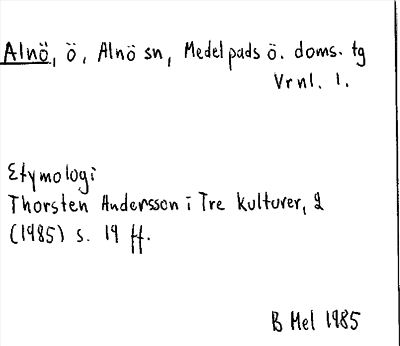 Alnö, ö, Alnö sn, Medelpads ö. doms. tg
Vrnl. 1.
Etymologi
Thorsten Andersson i Tre kulturer, 2
(1985) s. 19 ff.
B Mel 1985